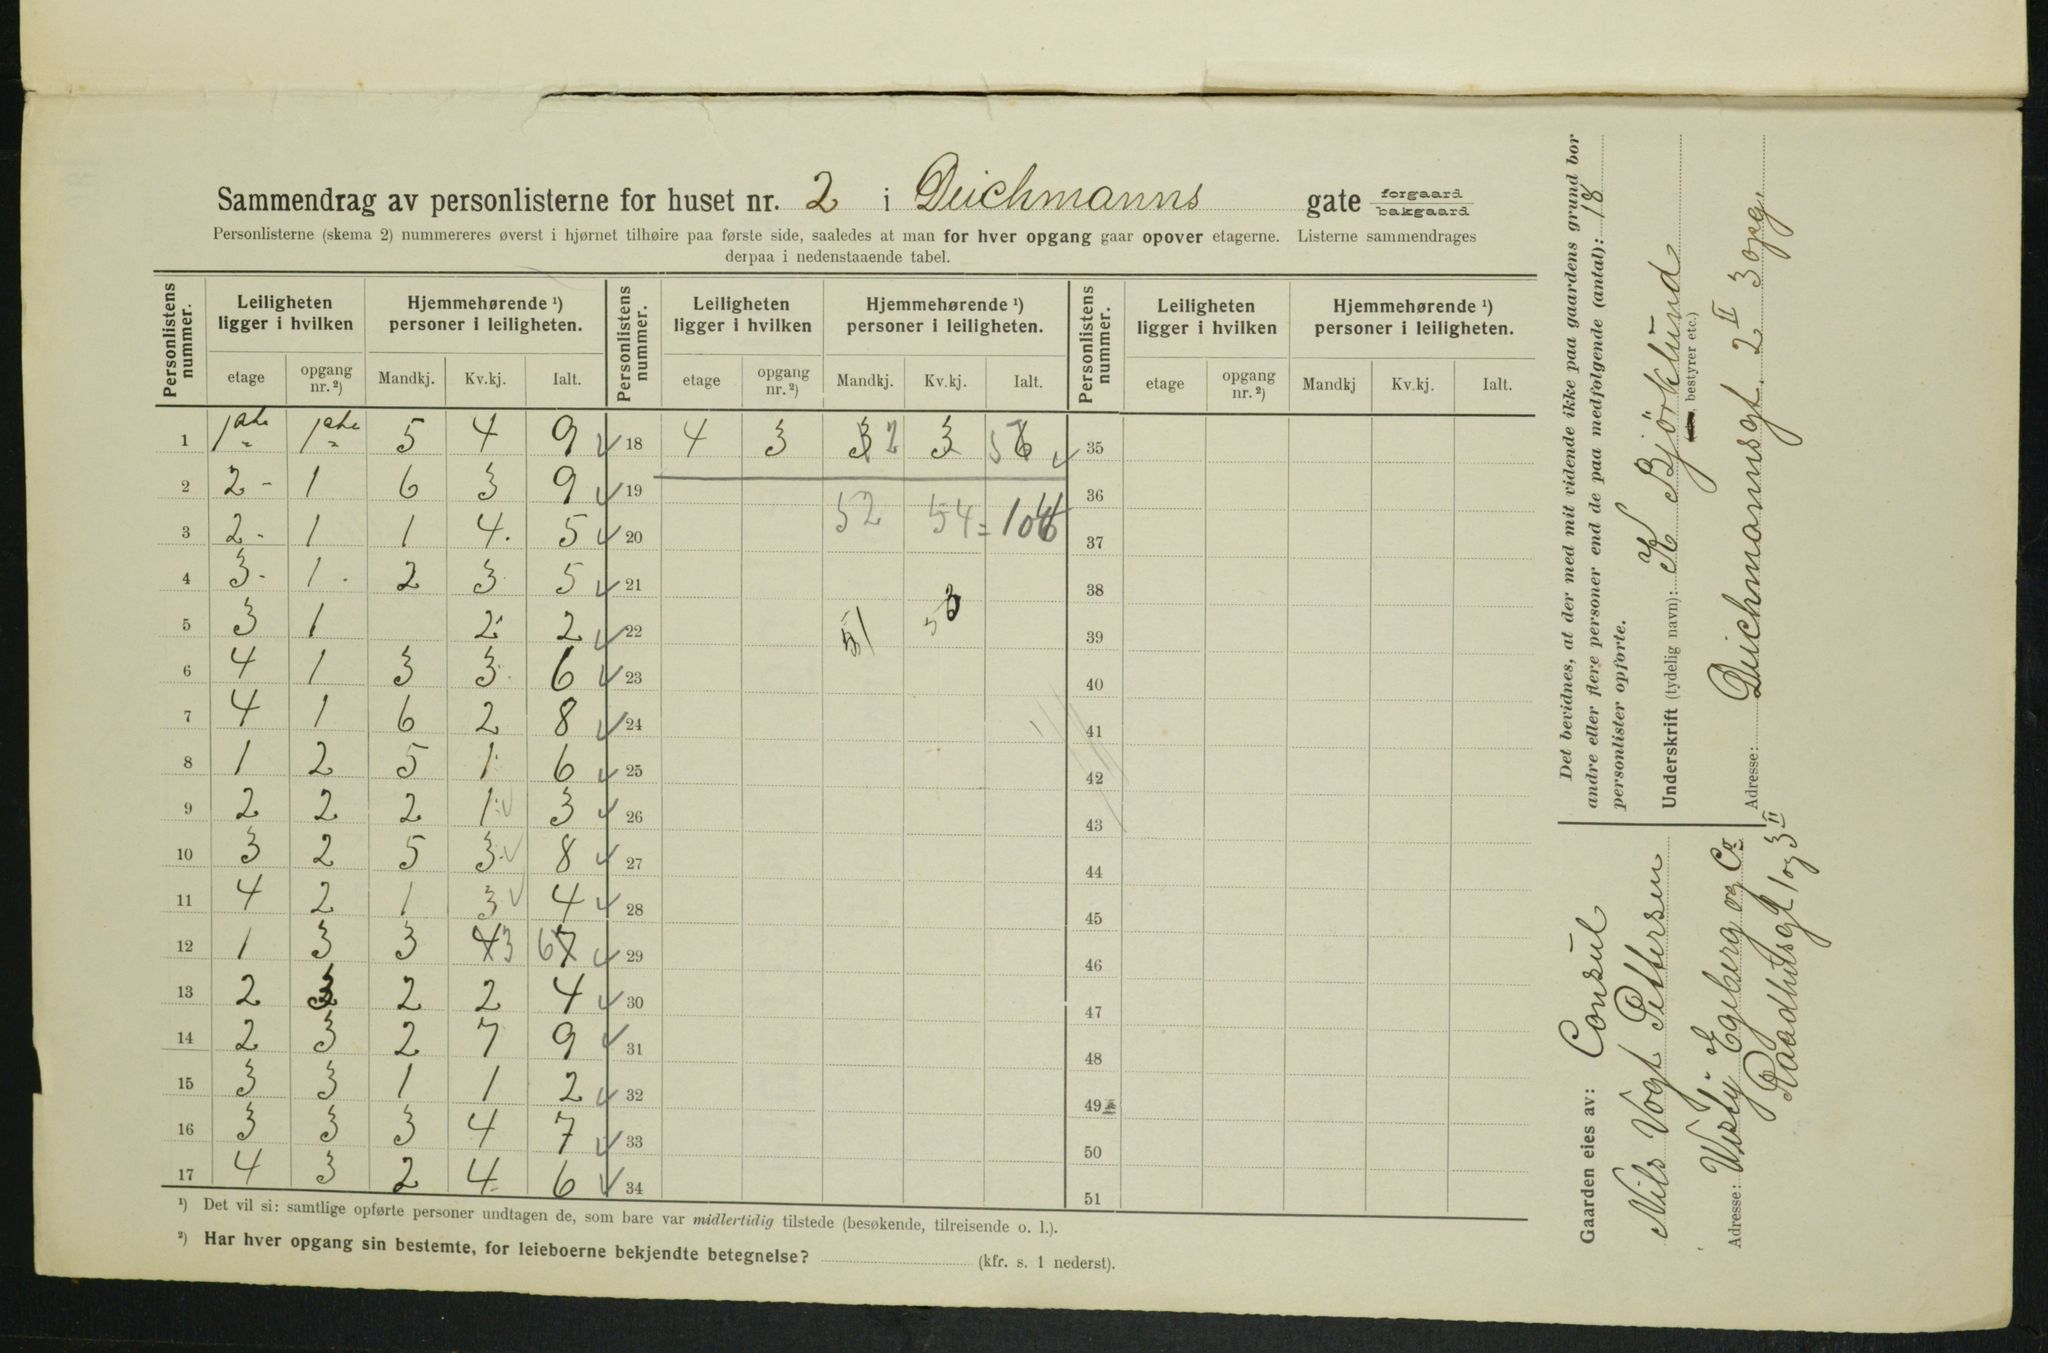 Sammendrag av personlisterne for huset nr. 2 i Deichmanns gate forgaard bakgaard
Personlisterne (skema 2) nummereres øverst i hjørnet tilhøire paa første side, saaledes at man for hver opgang gaar opover etagerne. Listerne sammendrages
derpaa i nedenstaaende tabel.
Personlistens nummer. Leiligheten ligger i hvilken Hjemmehørende ¹) personer i leiligheten. Personlistens nummer. Leiligheten ligger i hvilken Hjemmehørende ¹) personer i leiligheten. Personlistens nummer. Leiligheten ligger i hvilken Hjemmehørende ¹) personer i leiligheten.
etage opgang nr. ²) Mandkj. Kv.kj. Ialt. etage opgang nr. ²) Mandkj. Kv.kj. Ialt. etage opgang nr. ²) Mandkj Kv.kj. Ialt.
1 1ste 1ste 5 4 9 18 4 3 3 2 3 5 6 35
2 2 - 1 6 3 9 19 36
3 2 - 1 1 4. 5 20 52 54 = 106 37
4 3 - 1. 2 3 5 21 38
5 3 1 2 2 22 51 53 39
6 4 1 3 3 6 23 40
7 4 1 6 2 8 24 41
8 1 2 5 1 6 25 42
9 2 2 2 1 3 26 43
10 3 2 5 3 8 27 44
11 4 2 1 3 4 28 45
12 1 3 3 4 3 6 7 29 46
13 2 3 2 2 4 30 47
14 2 3 2 7 9 31 48
15 3 3 1 1 2 32 49
16 3 3 3 4 7 33 50
17 4 3 2 4 6 34 51
¹) Det vil si: samtlige opførte personer undtagen de, som bare var midlertidig tilstede (besøkende, tilreisende o. l.).
²) Har hver opgang sin bestemte, for leieboerne bekjendte betegnelse? (kfr. s. 1 nederst).
Det bevidnes, at der med mit vidende ikke paa gaardens grund bor
andre eller flere personer end de paa medfølgende (antal): 18
personlister opførte.
Underskrift (tydelig navn): K Bjørklund
, bestyrer etc.)
Adresse: Deichmannsgt. 2 II 3 opg
Gaarden eies av: Consul
Nils Vogt Pettersen
Adresse: Egeberg og Co
Raadhusgt 1 og 3 II